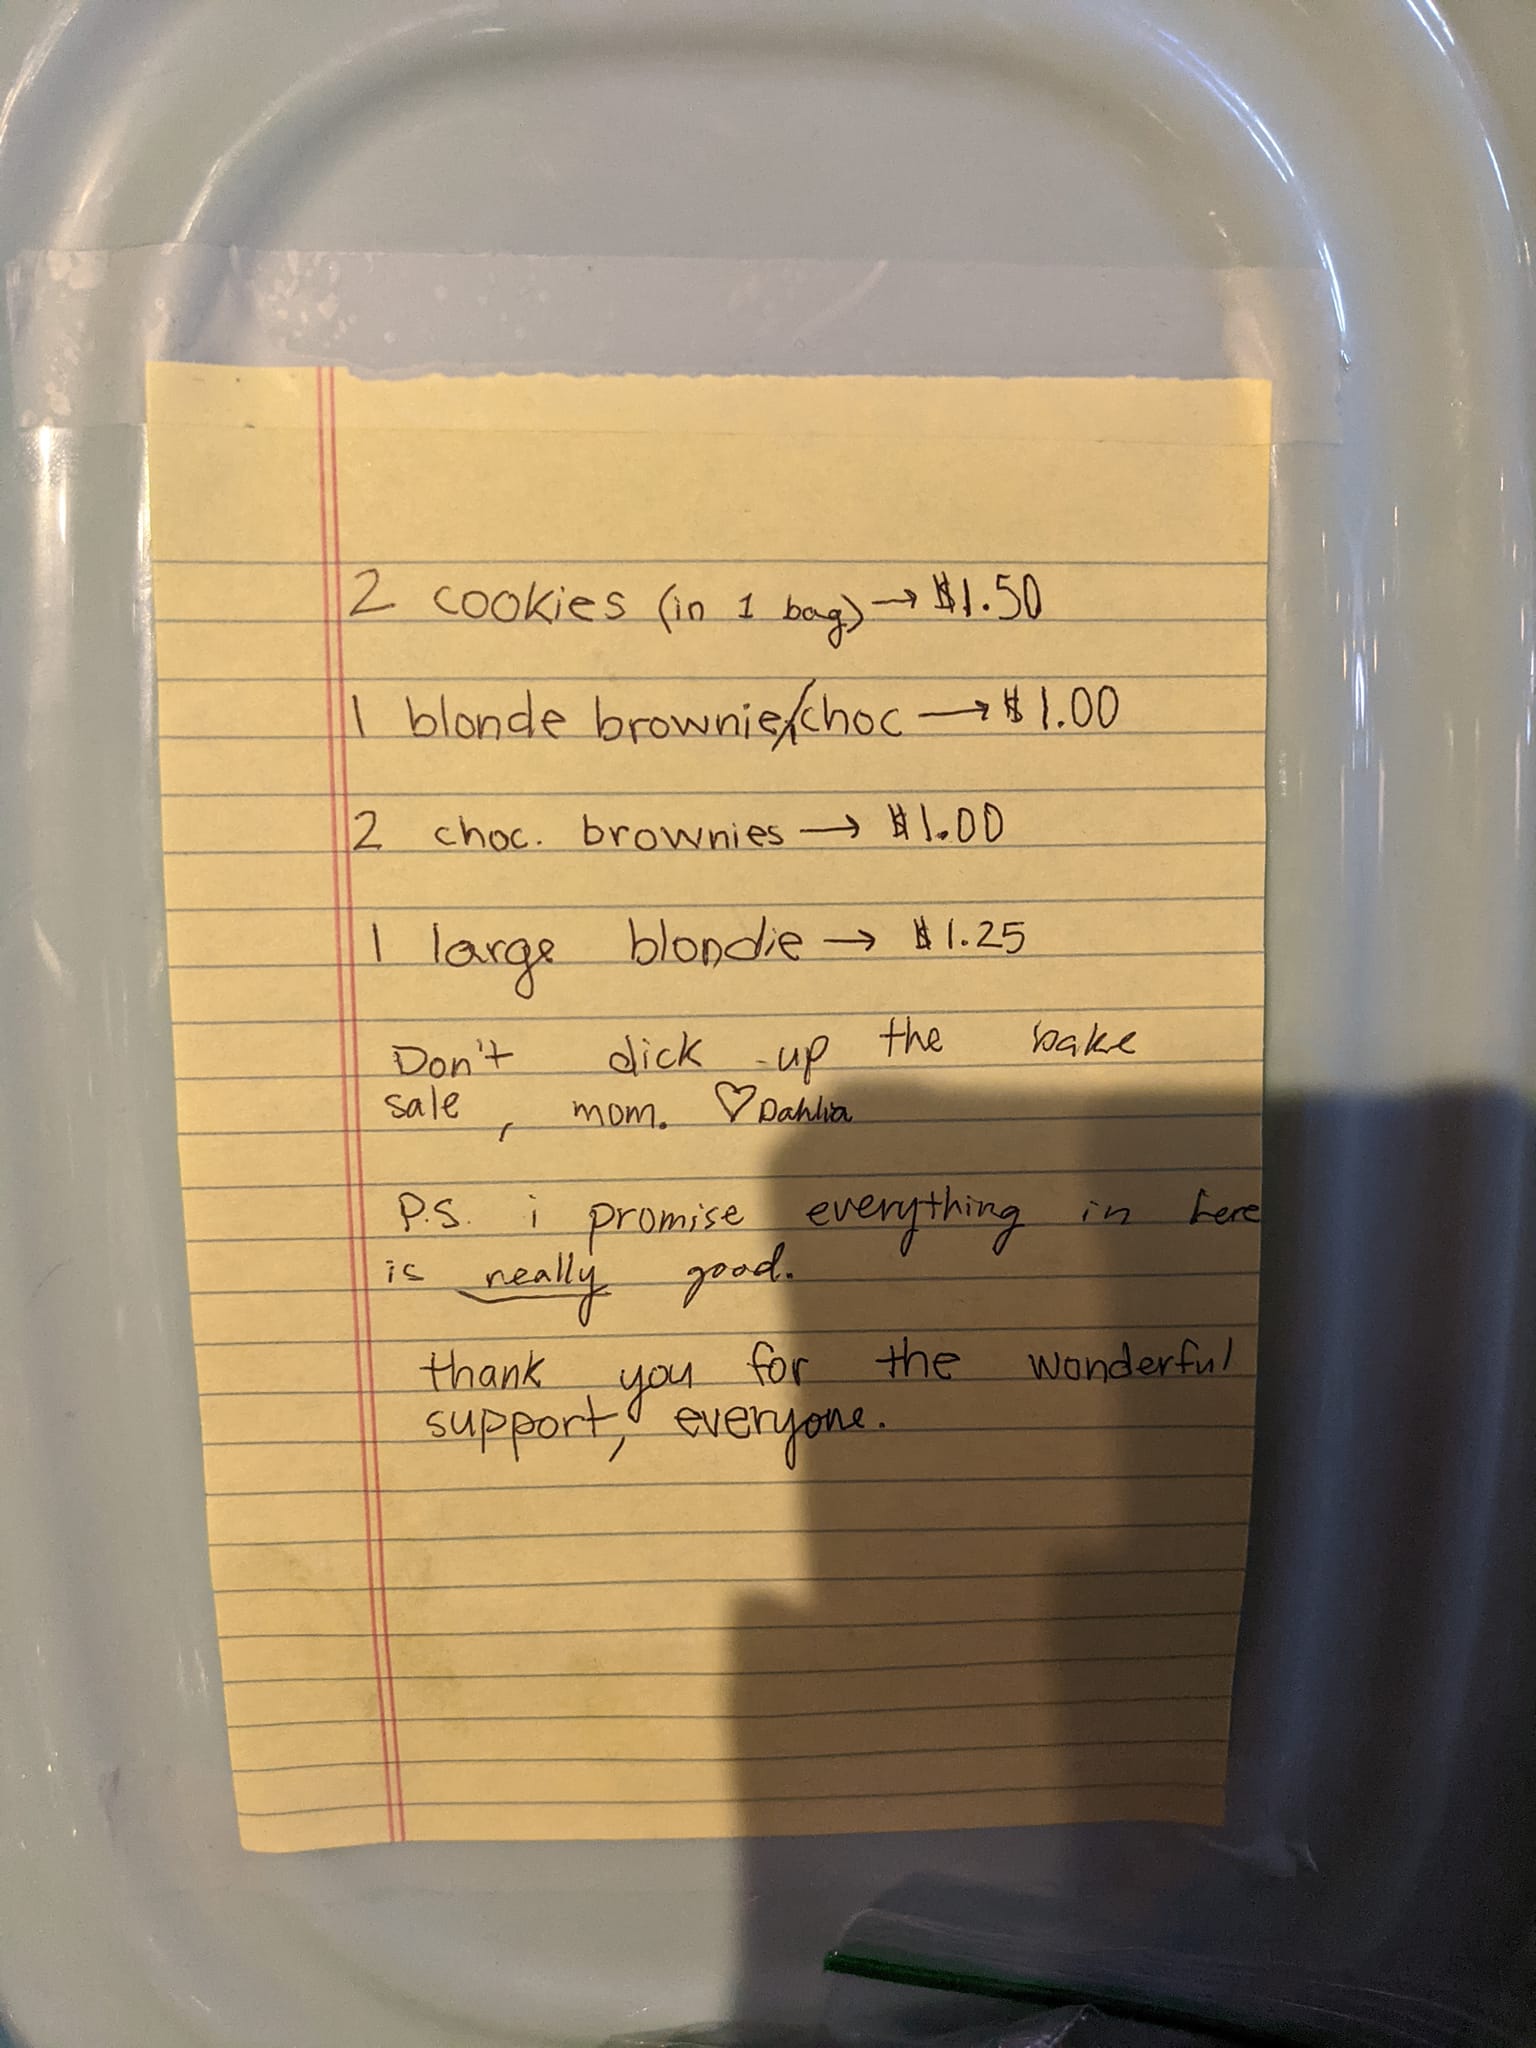 2 cookies (in 1 bag) → $1.50
1 blonde brownie/choc → $1.00
2 choc. brownies → $1.00
1 large blondie → $1.25
Don't dick up the bake
sale, mom. ♡ Dahlia
P.S. i promise everything in here
is really good.
thank you for the wonderful
support, everyone.